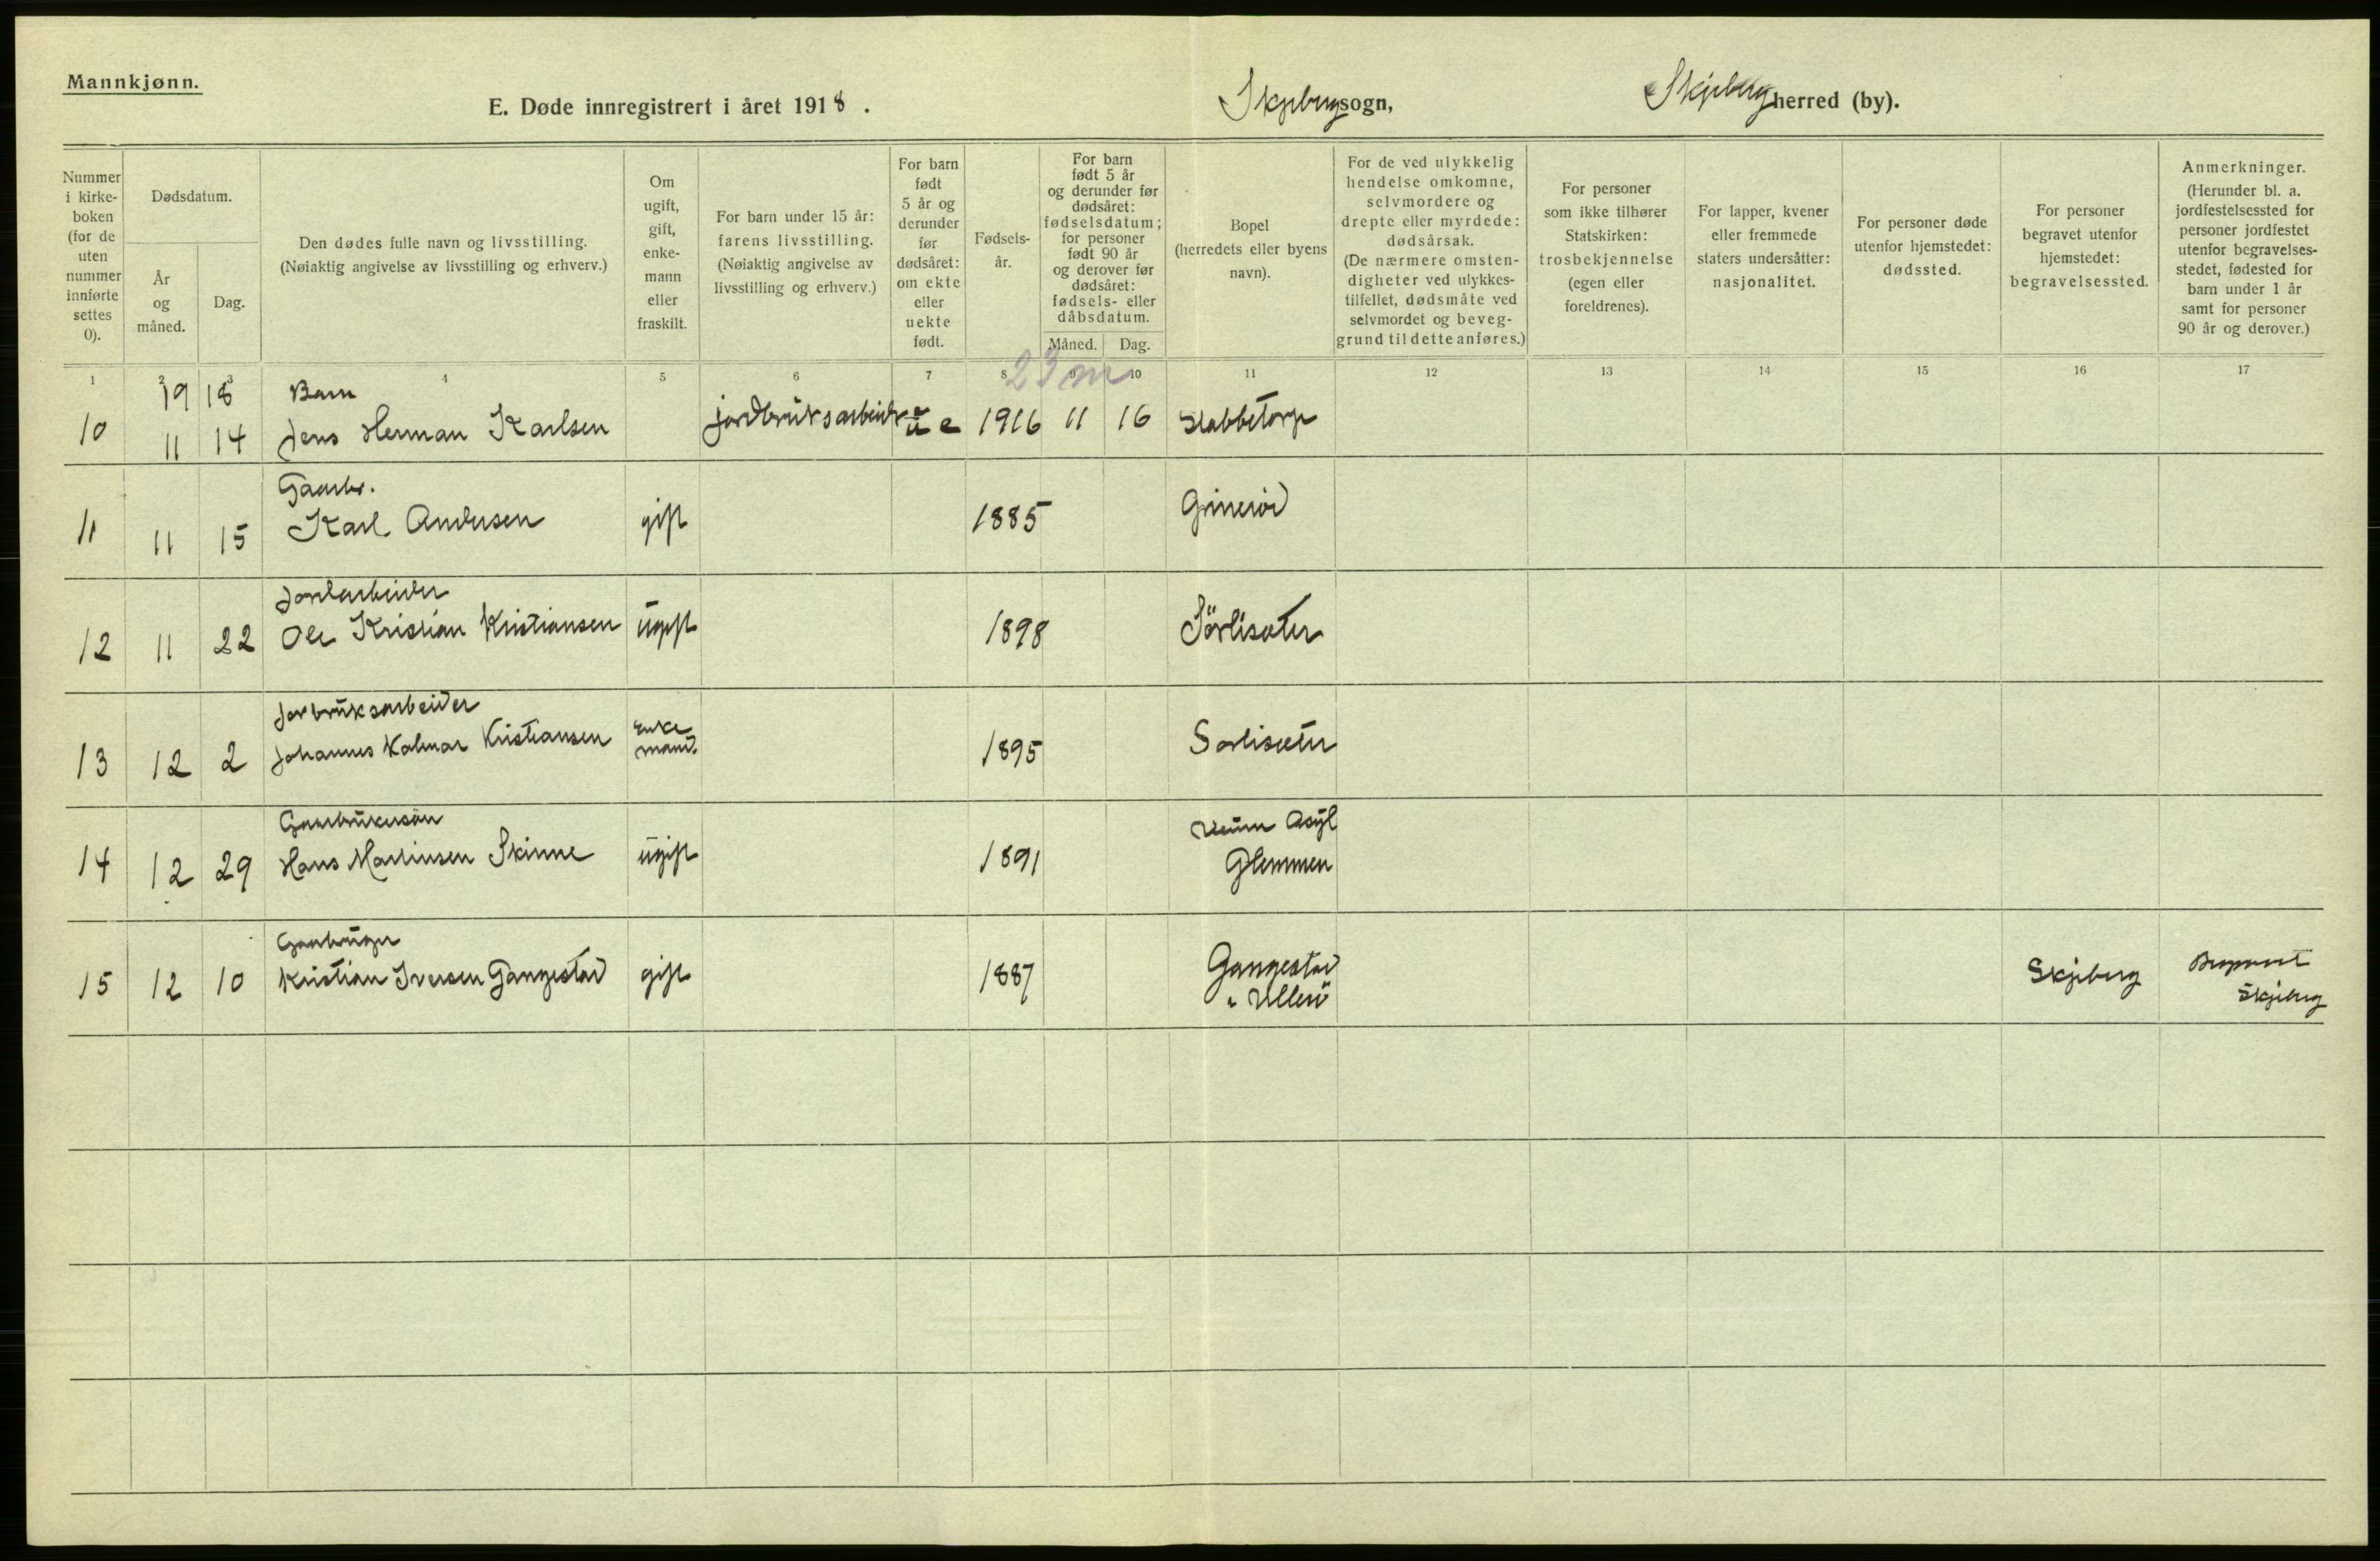 Mannkjønn.
E. Døde innregistrert i året 1918.
Skjeberg sogn,
Skjeberg herred (by).
Nummer i kirke-boken (for de uten nummer innførte settes 0).
Dødsdatum.
År og måned.
Dag.
Den dødes fulle navn og livsstilling.
(Nøiaktig angivelse av livsstilling og erhverv.)
Om ugift, gift, enke-mann eller fraskilt.
For barn under 15 år: farens livsstilling. (Nøiaktig angivelse av livsstilling og erhverv.)
For barn født 5 år og derunder før dødsåret: om ekte eller uekte født.
Fødsels-år.
For barn født 5 år og derunder før dødsåret: fødselsdatum; for personer født 90 år og derover før dødsåret: fødsels- eller dåbsdatum.
Måned. Dag.
Bopel (herredets eller byens navn).
For de ved ulykkelig hendelse omkomne, selvmordere og drepte eller myrdede: dødsårsak. (De nærmere omsten-digheter ved ulykkes-tilfellet, dødsmåte ved selvmordet og beveg-grund til dette anføres.)
For personer som ikke tilhører Statskirken: trosbekjennelse (egen eller foreldrenes).
For lapper, kvener eller fremmede staters undersåtter: nasjonalitet.
For personer døde utenfor hjemstedet: dødssted.
For personer begravet utenfor hjemstedet: begravelsessted.
Anmerkninger. (Herunder bl. a. jordfestelsessted for personer jordfestet utenfor begravelses-stedet, fødested for barn under 1 år samt for personer 90 år og derover.)
1 2 3 4 5 6 7 8 9 10 11 12 13 14 15 16 17
23 m
1918 Barn
10 11 14 Jens Herman Karlsen jordbruksarbeider e 1916 11 16 Stabbetorp
Gaarbr.
11 11 15 Karl Andersen gift 1885 Grimsrød
Jordarbeider
12 11 22 Ole Kristian Kristiansen ugift 1898 Sörlisæter
Jorbruksarbeider
13 12 2 Johannes Valmar Kristiansen Enkemand. 1895 Sorlisæter
Gaarbrukersøn
14 12 29 Hans Martinsen Skinne ugift 1891 Veum Asyl Glemmen
Gaarbruger
15 12 10 Kristian Iversen Gangestad gift 1887 Gangestad Ullerö Skjeberg Skjeberg